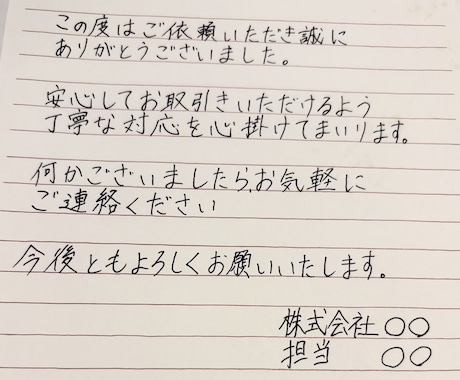 この度はご依頼いただき誠に
ありがとうございました。
安心してお取引きいただけるよう
丁寧な対応を心掛けてまいります。
何かございましたら、お気軽に
ご連絡ください
今後ともよろしくお願いいたします。
株式会社○○
担当 ○○